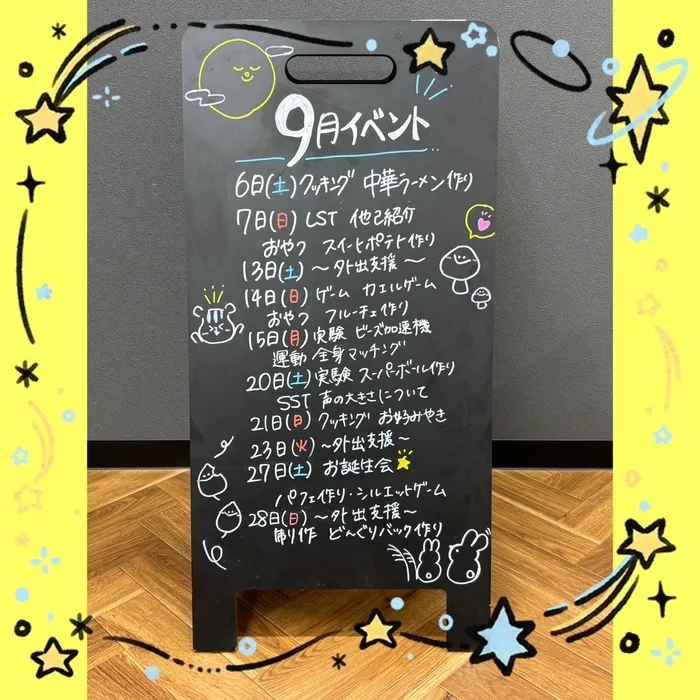 9月イベント
6日(土)クッキング 中華ラーメン作り
7日(日) LST 他己紹介
おやつ スイートポテト作り
13日(土) ～外出支援～
14日(日) ゲーム カエルゲーム
おやつ フルーチェ作り
15日(月) 実験 ビーズ加速機
運動 全身マッチング
20日(土) 実験 スーパーボール作り
SST 声の大きさについて
21日(日) クッキング お好みやき
23日(火) ～外出支援～
27日(土) お誕生会
パフェ作り・シルエットゲーム
28日(日) ～外出支援～
制作 どんぐりバック作り